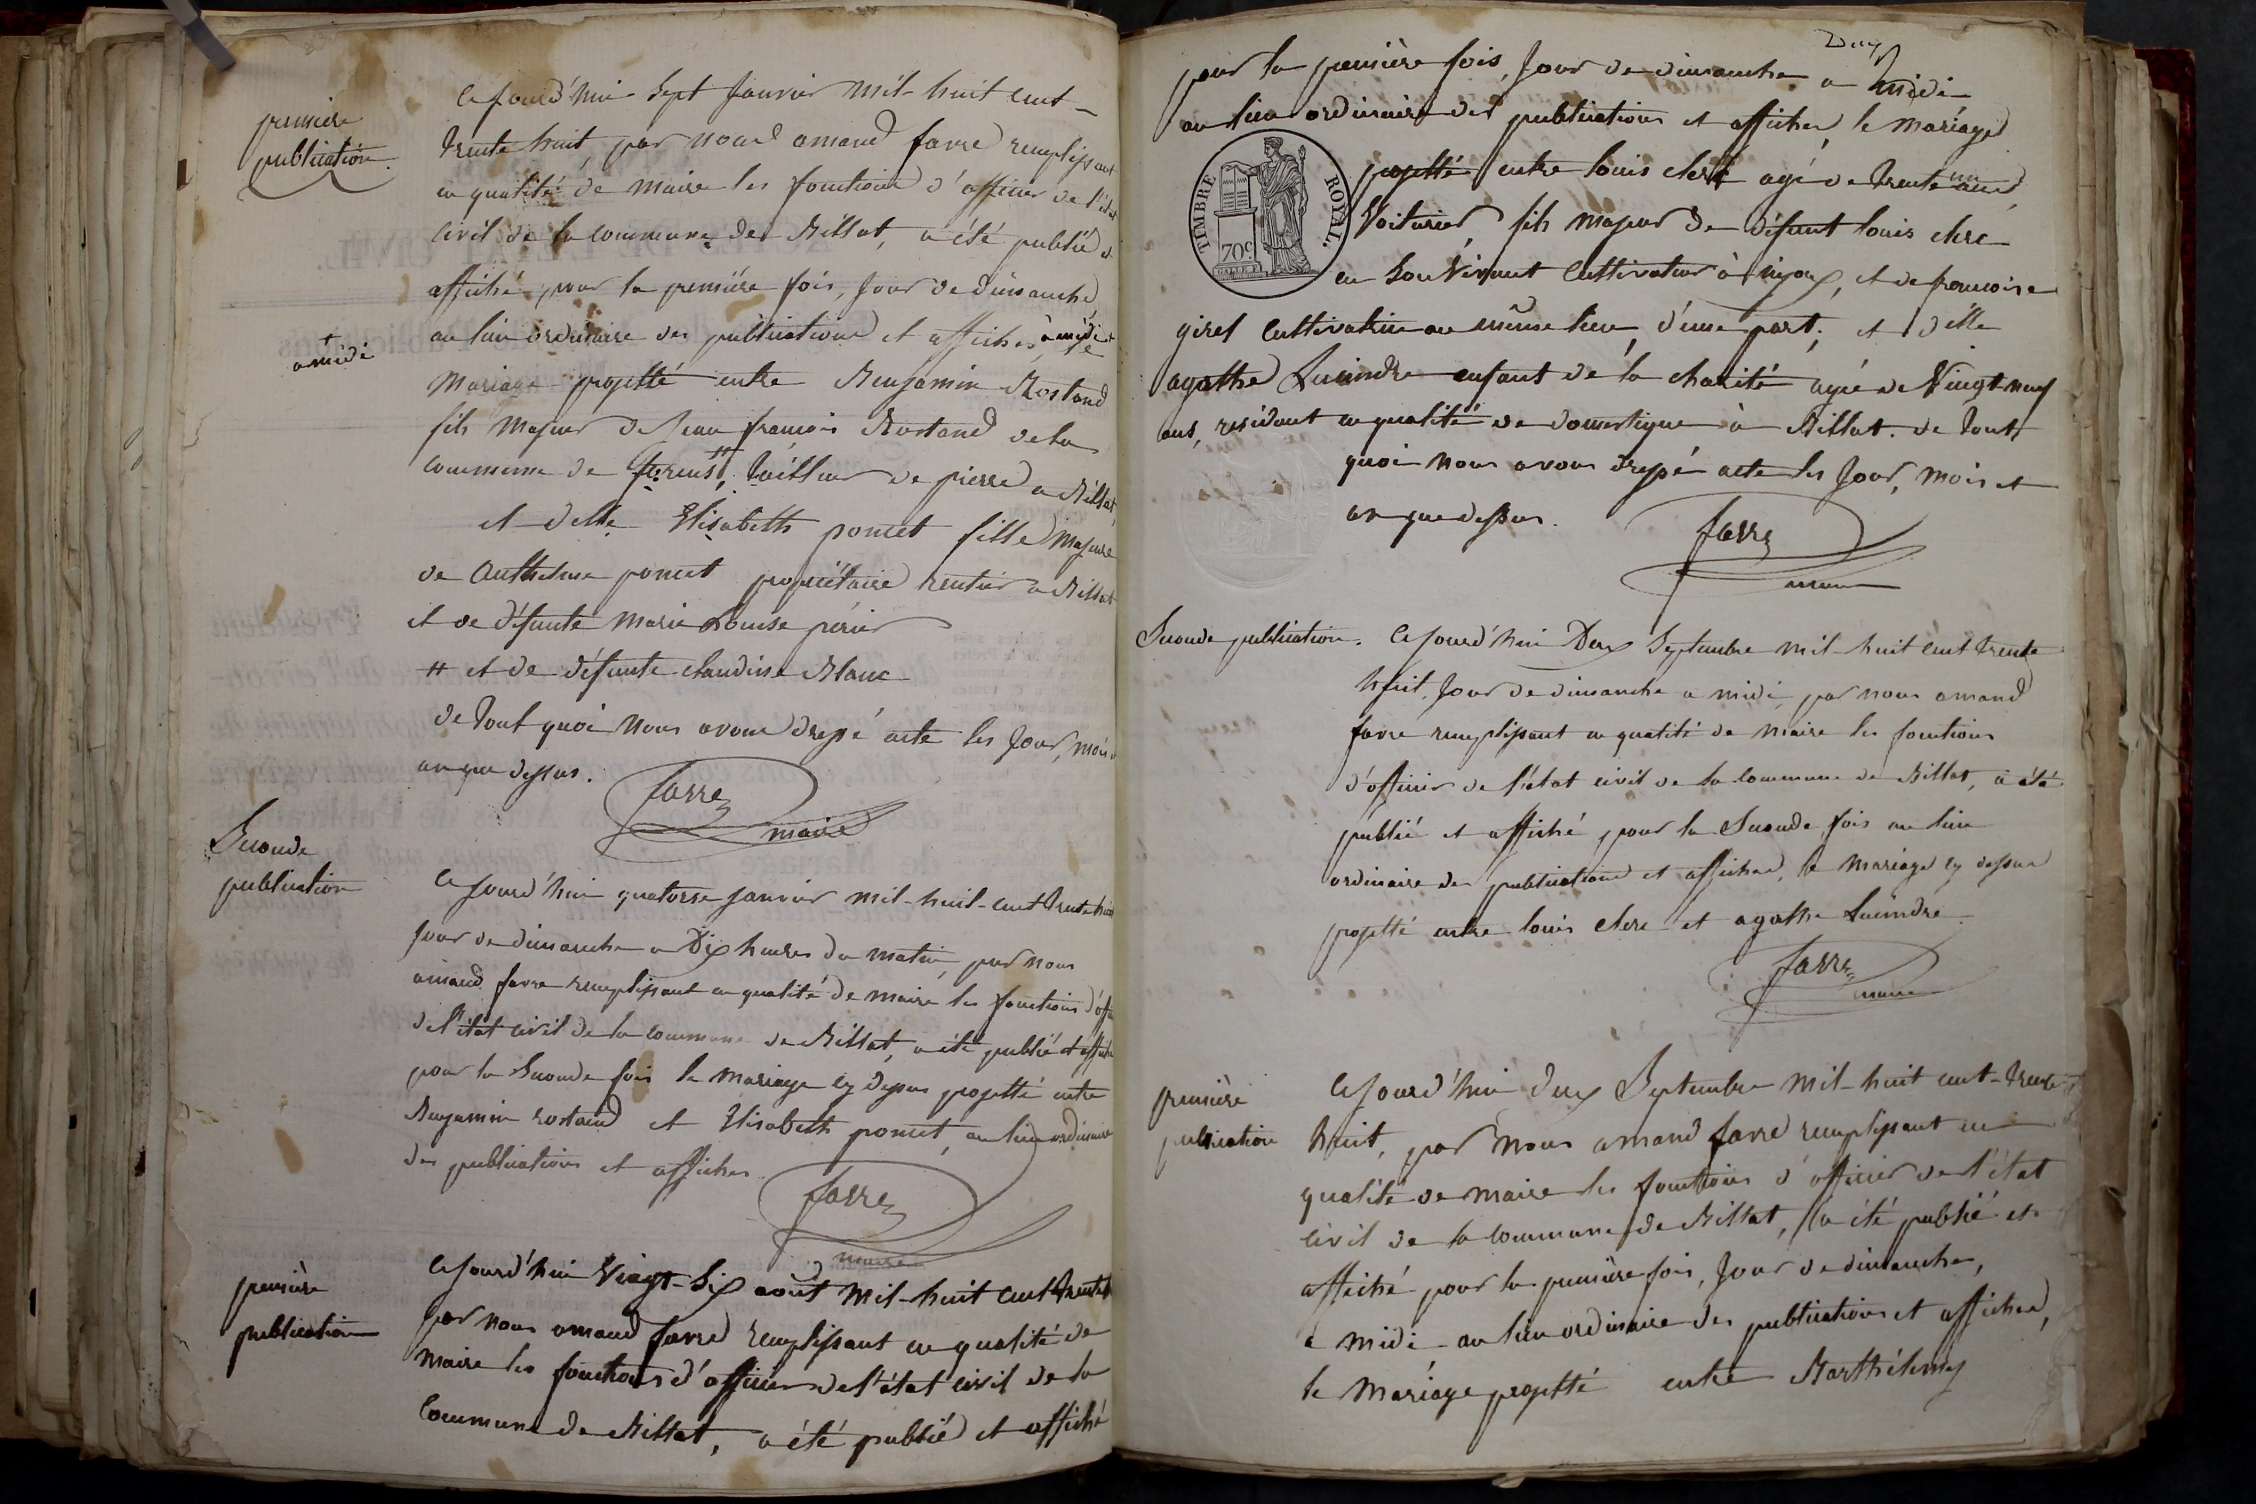 première
publication.
Cejourd'hui Sept Janvier mil-huit cent-
trente huit, par nous amand favre remplissant
en qualité de maire les fonctions d'officier de l'état
civil de la commune de Billat, a été publié et
affiché pour la première fois, Jour de dimanche,
à midi
au lieu ordinaire des publications et affiches à midi le
mariage projetté entre Benjamin Rostand
fils majeur de Jean françois Rostand de la
commune de forens #, tailleur de pierre a Billat,
et delle Elisabeth poncet fille majeure
de Anthelme poncet propriétaire rentier a Billat
et de défunte Marie Louise périer
# et de défunte claudine Blanc
de tout quoi nous avons dressé acte les Jour, mois et
an que dessus.
favre
maire
Seconde
publication
Cejourd'hui quatorse janvier mil-huit-cent trente huit
jour de dimanche a Dix heures du matin, par nous
amand favre remplissant en qualité de maire les fonctions d'offi
de l'état civil de la commune de Billat, a été publié et affiché
pour la Seconde fois le mariage cy dessus projetté entre
Benjamin rostand et Elisabeth poncet, au lieu ordinaire
des publications et affiches.
favre
maire
première
publication
Cejourd'hui Vingt-Six août mil-huit cent trente
par nous amand favre remplissant en qualité de
maire les fonctions d'officier de l'état civil de la
Commune de Billat, a été publié et affiché
Deux
pour la première fois, Jour de dimanche a midi
au lieu ordinaire des publications et affiches, le mariage
TIMBRE ROYAL.
70c
projetté entre louis clerc agé de trente un ans,
Voiturier, fils majeur de défunt louis clerc
en Son Vivant Cultivateur à injoux, et de francoise
giret Cultivatrice au même lieu, d'une part; et delle
agathe Lucindre enfant de la charité agée de Vingt-neuf
ans, residant en qualité de domestique à Billat. de tout
quoi nous avons dressé acte les Jour, mois et
an que dessus.
favre
maire
Seconde publication.
Cejourd'hui Deux Septembre mil-huit cent trente
huit, Jour de dimanche a midi, par nous amand
favre remplissant en qualité de maire les fonctions
d'officier de l'état civil de la Commune de Billat, a été
publié et affiché pour la Seconde fois au lieu
ordinaire des publications et affiches, le mariage cy dessus
projetté entre louis clerc et agathe Lucindre.
favre
maire
première
publication
Cejourd'hui deux Septembre mil-huit cent-trente
huit, par nous amand favre remplissant en
qualité de maire les fonctions d'officier de l'état
civil de la commune de Billat, a été publié et
affiché pour la première fois, Jour de dimanche,
a midi au lieu ordinaire des publications et affiches,
le mariage projetté entre Barthélemy